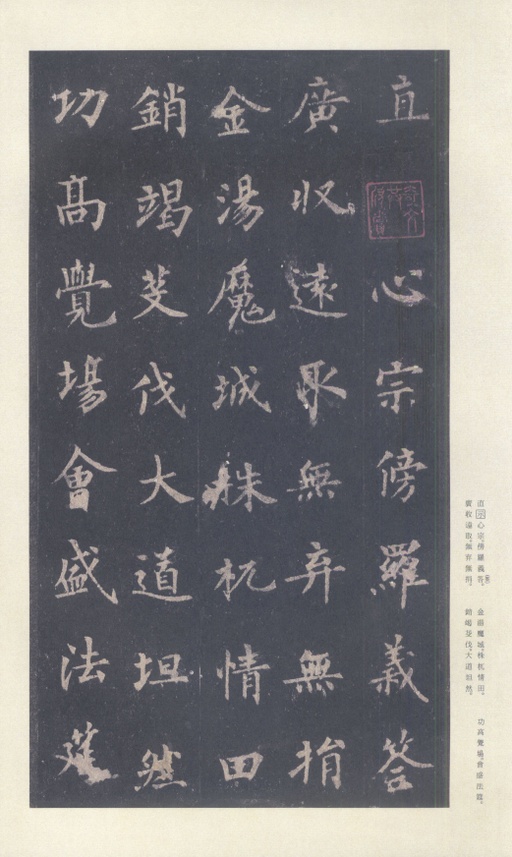 直心宗傍羅義荅
廣收遠取無弃無捐
金湯魔城株杌情田
銷竭芟伐大道坦然
功高覺場會盛法筵
直示心宗傍羅義荅
廣收遠取無弃無捐
金湯魔城株杌情田
銷竭芟伐大道坦然
功高覺場會盛法筵